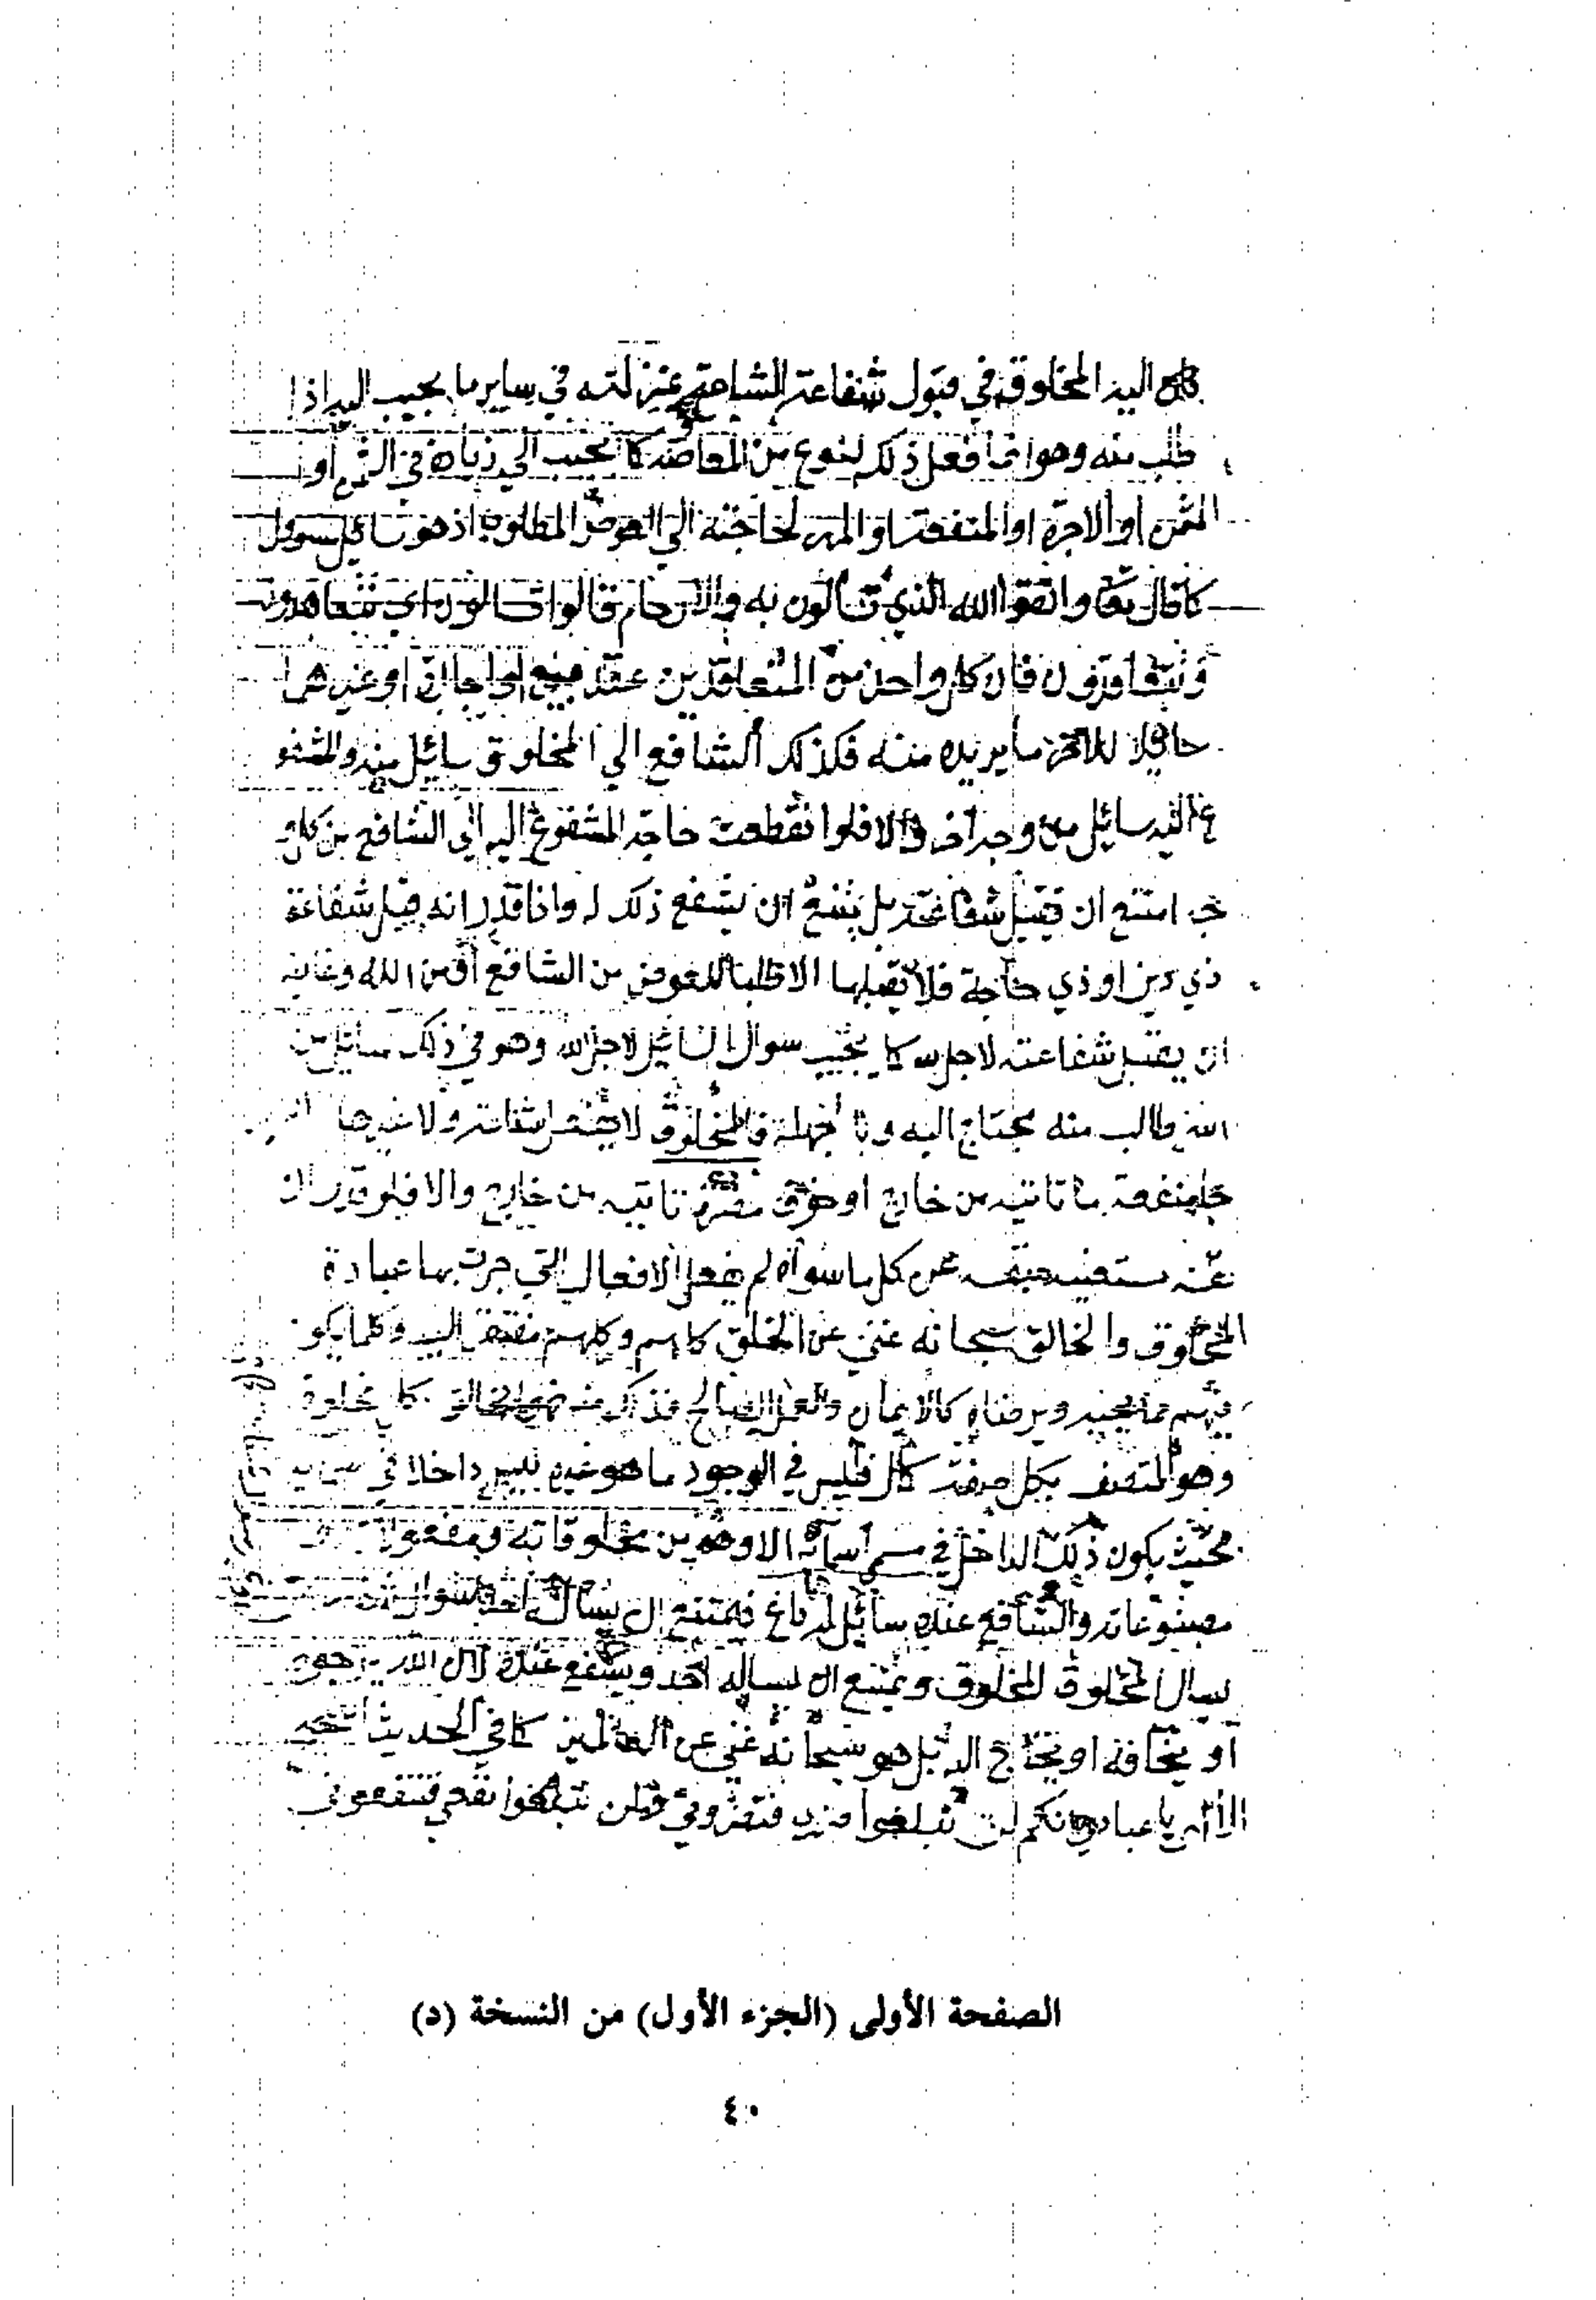 اليه المخلوق في قبول شفاعة الشافع بمنزلته في ساير ما يجيب اليه اذا
طلب منه وهو انما فعل ذلك لنوع من المعاوضه كما يجيب الي زياده في الثمن أو
المثمن او الاجره او المنفعة او المهر لحاجته الي العوض المطلوب اذ هو سائل مسول
كما قال تعا واتقوا الله الذي تسألون به والارحام قالوا تسالون اي تتعاهدون
وتتعاقدون فان كل واحد من المتعاقدين عقد مبيع او اجاره او غيرهما
للاخر ما يريده منه فكذلك الشافع الي المخلوق سائل منه والمشفو
ع اليه سائل من وجه آخر والا فلو انقطعت حاجة المشفوع اليه الي الشافع من كل و
جه امتنع ان يقبل شفاعته بل يمتنع ان يشفع ذلك له واذا قدر انه يقبل شفاعة
ذي دين او ذي حاجة فلا يقبلها الا طلبا للعوض من الشافع أو من الله وغايته
ان يقبل شفاعته لاجل الله كما يجيب سوال السائل لاجل الله وهو في ذلك سائل من
الله طالب منه محتاج اليه وبالجملة فالمخلوق لا يقبل شفاعة ولا غيرها
جلب منفعة ما تاتيه من خارج او خوف مضرة تاتيه من خارج والا فلو قدر ان
مستغنيه عن كل ما سواه لم يفعل الافعال التي جرت بها عبادة
المخلوق والخالق سبحانه غني عن الخلق كلهم وكلهم مفتقر اليه وكلما يكون
منهم مما يحبه ويرضاه كالايمان والعمل الصالح فذلك منه فهو الخالق كل مخلوق
وهو المتصف بكل صفة كمال فليس في الوجود ما هو غيره ليس داخلا في
بحيث يكون ذلك الداخل في مسمى أسمائه الا وهو من مخلوقاته ومفعولاته
مصنوعاته والشافع عنده سائل له داع فيمتنع ان يسأله أحد
يسال المخلوق للمخلوق ويمتنع ان يساله أحد ويشفع عنده لان الله يرجوه
أو يخافه او يحتاج اليه بل هو سبحانه غني عن العالمين كما في الحديث الصحيح
الالهي يا عبادي إنكم لن تبلغوا ضري فتضروني ولن تبلغوا نفعي فتنفعوني
الصفحة الأولى (الجزء الأول) من النسخة (د)
٤٠